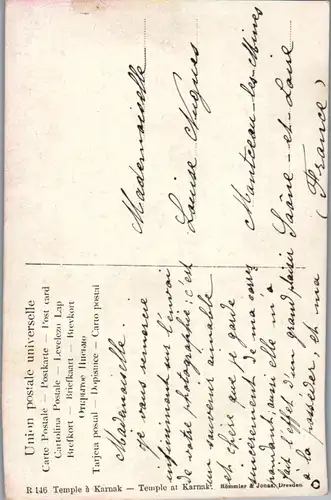 Union postale universelle
Carte Postale — Postkarte — Post card
Cartolina Postale — Levelezo Lap
Brefkort — Briefkaart — Brevkort
Tarjeta postal — Dopisnice — Carto postal
Mademoiselle
Louise Nugues
Montceau-les-Mines
Saône-et-Loire
(France)
Mademoiselle.
Je vous remercie
infiniment sur l'envoi
de votre photographie; c'est
un souvenir aimable
et chère que je garde
sincèrement de ma corres
pondante; aussi elle m'a
fait l'effet d'un grand plaisir
à la posséder, et ma
R 146 Temple à Karnak — Temple at Karnak.
Römmler & Jonas, Dresden